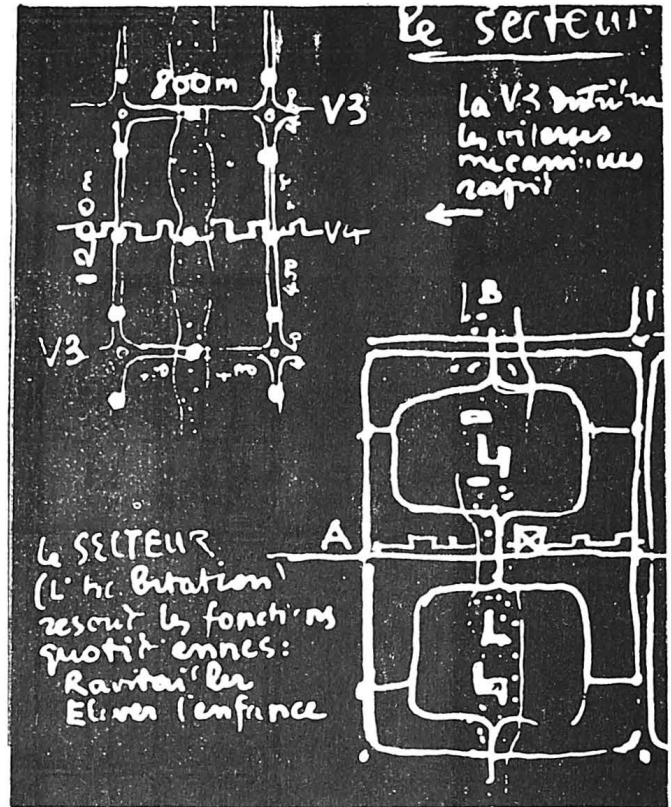 le secteur
800m
V3
la V3
les vitesses
mecaniques
rapid
1200m
V4
V3
B
A
le SECTEUR
(L'habitation)
resout les fonctions
quotidiennes:
Ravitailler
Elever l'enfance